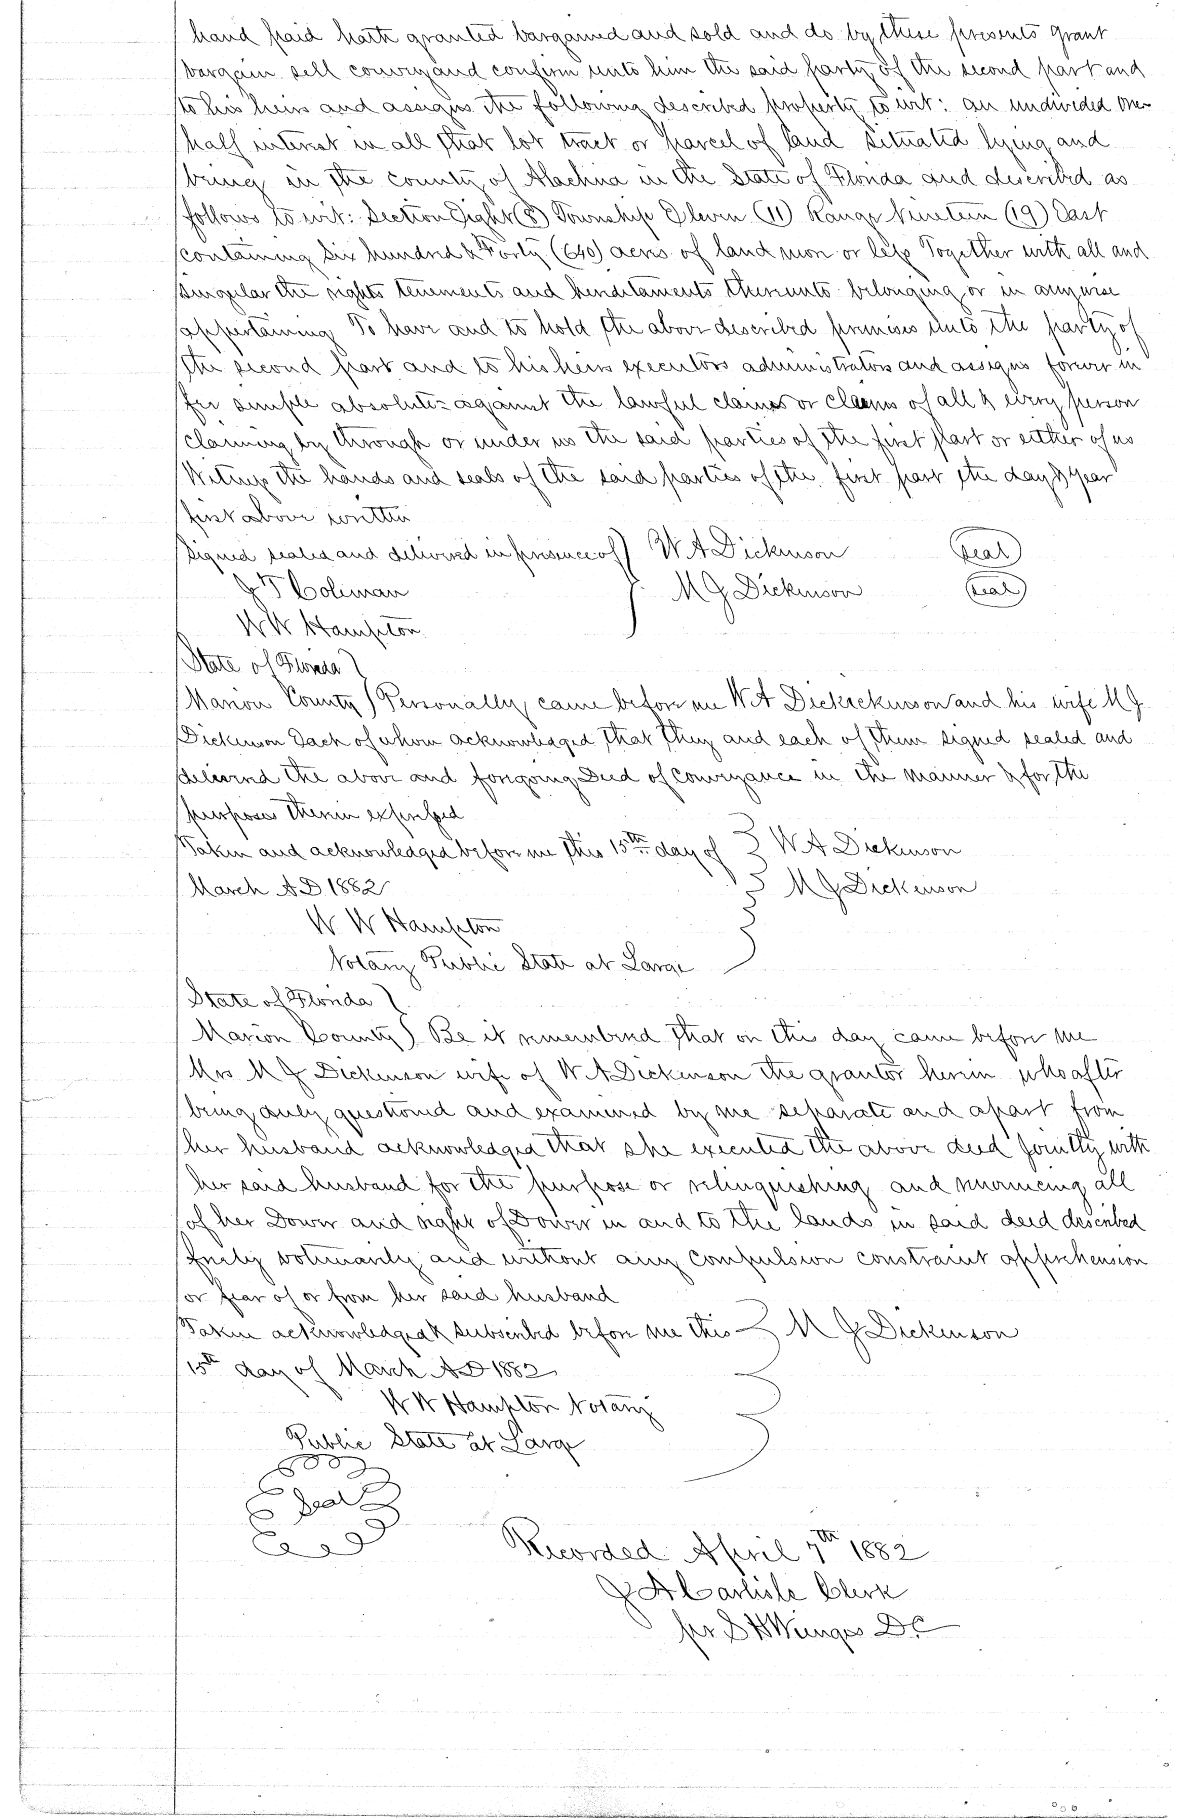 hand paid hath granted bargained and sold and do by these presents grant
bargain sell convey and confirm unto him the said party of the second part and
to his heirs and assigns the following described property to wit: an undivided one
half interest in all that lot tract or parcel of land situated lying and
being in the county of Alachua in the State of Florida and described as
follows to wit: Section Eight (8) Township Eleven (11) Range Nineteen (19) East
containing Six hundred & Forty (640) acres of land more or less Together with all and
singular the rights tenements and hereditaments thereunto belonging or in anywise
appertaining To have and to hold the above described premises unto the party of
the second part and to his heirs executors administrators and assigns forever in
fee simple absolute = against the lawful claims or claims of all & every person
claiming by through or under us the said parties of the first part or either of us
Witness the hands and seals of the said parties of the first part the day & year
first above written
Signed sealed and delivered in presence of } W A Dickinson (Seal)
J T Coleman } M J Dickinson (Seal)
W W Hampton
State of Florida }
Marion County } Personally came before me W A Dickickinson and his wife M J
Dickinson Each of whom acknowledged that they and each of them signed sealed and
delivered the above and foregoing Deed of Conveyance in the manner & for the
purposes therein expressed
Taken and acknowledged before me this 15th day of } W A Dickinson
March A D 1882 } M J Dickinson
W W Hampton
Notary Public State at Large
State of Florida }
Marion County } Be it remembered that on this day came before me
Mrs M J Dickinson wife of W A Dickinson the grantor herein who after
being duly questioned and examined by me separate and apart from
her husband acknowledged that she executed the above deed jointly with
her said husband for the purpose or relinquishing and renouncing all
of her Dower and right of Dower in and to the lands in said deed described
freely voluntarily and without any compulsion constraint apprehension
or fear of or from her said husband
Taken acknowledged & subscribed before me this } M J Dickinson
15th day of March A D 1882
W W Hampton Notary
Public State at Large
Seal
Recorded April 7th 1882
J A Carlisle Clerk
per S H Wienges D.C